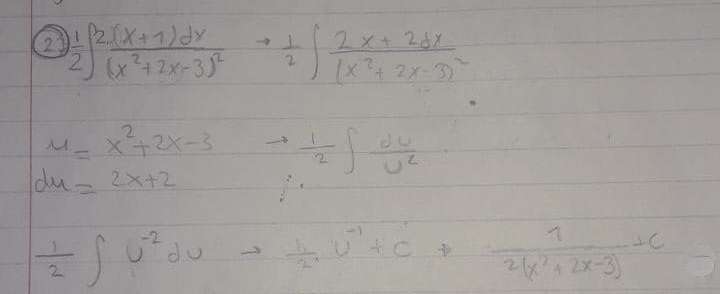 2) 1/2 ∫ 2.(x+1)dx / (x²+2x-3)² → 1/2 ∫ 2x+2dx / (x²+2x-3)²
u = x²+2x-3 → 1/2 ∫ du / u²
du = 2x+2
1/2 ∫ u⁻² du → 1/2 . u⁻¹ + C → 1 / 2(x²+2x-3) + C